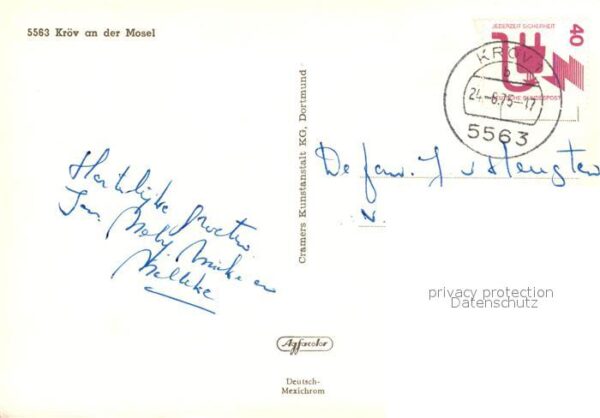 5563 Kröv an der Mosel
JEDERZEIT SICHERHEIT
40
DEUTSCHE BUNDESPOST
KRÖV
b
24.-6.75-17
5563
Cramers Kunstanstalt KG, Dortmund
De fam. J. v Hengsten
N.
Hartelijke Groeten
Jan
en
privacy protection
Datenschutz
Agfacolor
Deutsch-
Mexichrom